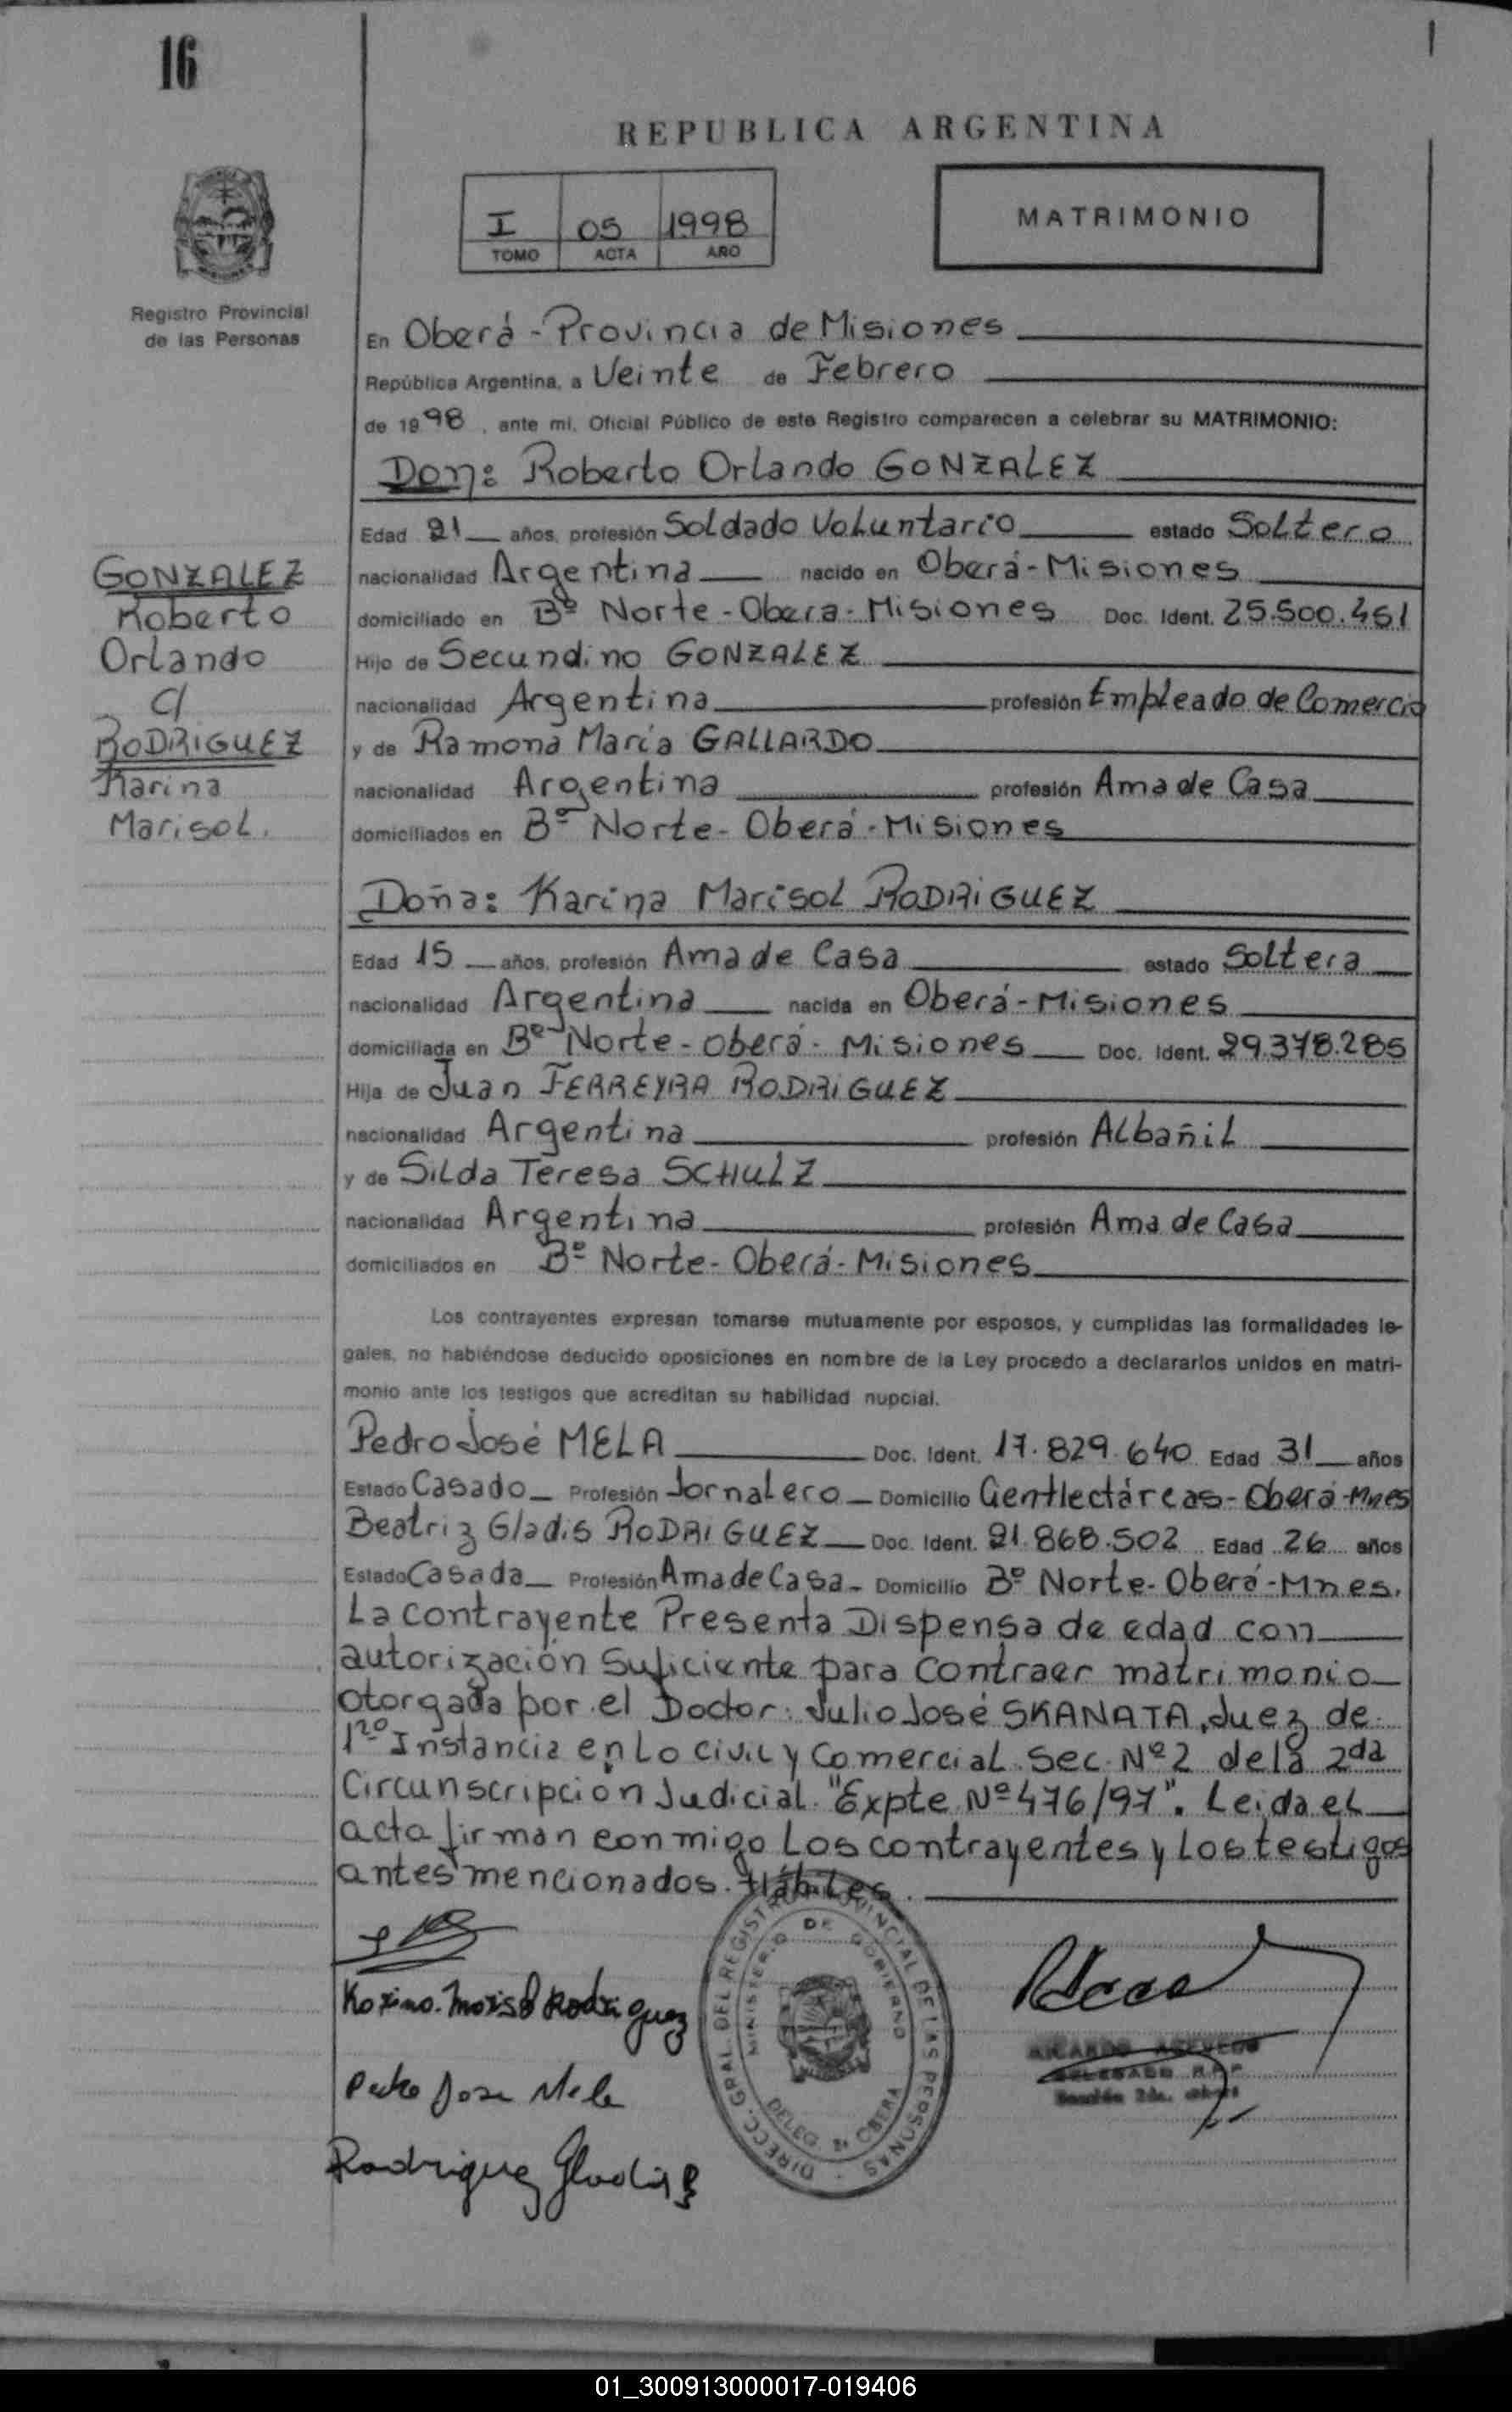 16
REPUBLICA ARGENTINA
I 05 1998
TOMO ACTA AÑO
MATRIMONIO
Registro Provincial
de las Personas
En Oberá - Provincia de Misiones
República Argentina, a Veinte de Febrero
de 1998, ante mi, Oficial Público de este Registro comparecen a celebrar su MATRIMONIO:
Don: Roberto Orlando GONZALEZ
Edad 21 años, profesión Soldado Voluntario estado Soltero
nacionalidad Argentina nacido en Oberá-Misiones
domiciliado en Bº Norte-Obera-Misiones Doc. Ident. 25.500.451
Hijo de Secundino GONZALEZ
nacionalidad Argentina profesión Empleado de Comercio
y de Ramona María GALLARDO
nacionalidad Argentina profesión Ama de Casa
domiciliados en Bº Norte-Oberá-Misiones
GONZALEZ
Roberto
Orlando
c/
RODRIGUEZ
Karina
Marisol.
Doña: Karina Marisol RODRIGUEZ
Edad 15 años, profesión Ama de Casa estado Soltera
nacionalidad Argentina nacida en Oberá-Misiones
domiciliada en Bº Norte-Oberá-Misiones Doc. Ident. 29.378.285
Hija de Juan FERREYRA RODRIGUEZ
nacionalidad Argentina profesión Albañil
y de Silda Teresa SCHULZ
nacionalidad Argentina profesión Ama de Casa
domiciliados en Bº Norte-Oberá-Misiones
Los contrayentes expresan tomarse mutuamente por esposos, y cumplidas las formalidades le-
gales, no habiéndose deducido oposiciones en nombre de la Ley procedo a declararlos unidos en matri-
monio ante los testigos que acreditan su habilidad nupcial.
Pedro José MELA Doc. Ident. 17.829.640 Edad 31 años
Estado Casado Profesión Jornalero Domicilio Cienthectáreas-Oberá-Mnes
Beatriz Gladis RODRIGUEZ Doc. Ident. 21.868.502 Edad 26 años
Estado Casada Profesión Ama de Casa Domicilio Bº Norte-Oberá-Mnes.
La contrayente Presenta Dispensa de edad con
autorización suficiente para contraer matrimonio
otorgada por el Doctor: Julio José SKANATA, Juez de
1ro Instancia en Lo civil y Comercial Sec. Nº2 de la 2da
Circunscripción Judicial "Expte Nº476/97". Leida el
acta firman conmigo Los contrayentes y Los testigos
antes mencionados. Hábiles.
Karina Marisol Rodriguez
Pedro Jose Mela
Rodriguez Gladis B
DIRECC. GRAL. DEL REGISTRO PROVINCIAL DE LAS PERSONAS
MINISTERIO DE GOBIERNO
DELEG. OBERA
RICARDO ACEVEDO
DELEGADO R.P.P.
01_300913000017-019406